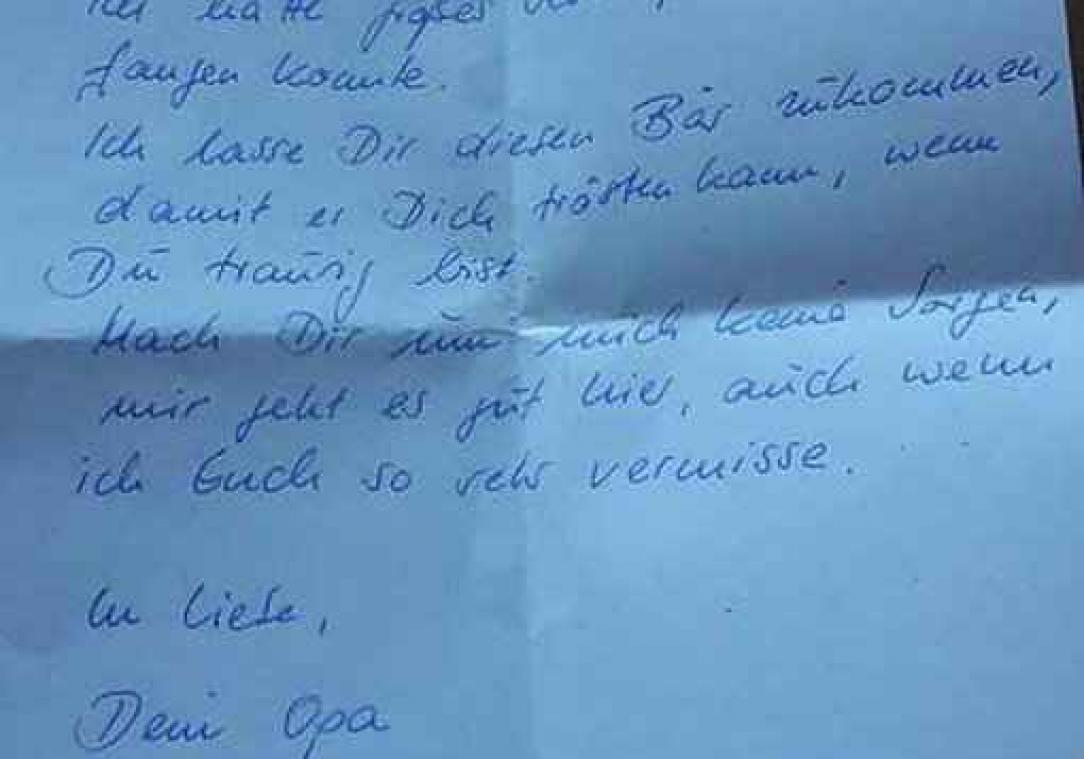 Ich hatte großes
fangen konnte.
Ich lasse Dir diesen Bär zukommen,
damit er Dich trösten kann, wenn
Du traurig bist.
Mach Dir um mich keine Sorgen,
mir geht es gut hier, auch wenn
ich Euch so sehr vermisse.
In Liebe,
Dein Opa